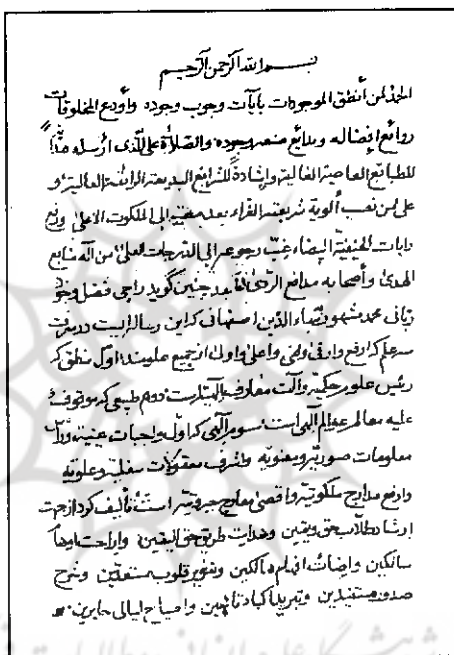 بسم الله الرحمن الرحیم
الحمد لمن أنطق الموجودات بآیات وجوب وجوده وأودع المخلوقات
روائع إفضاله وبدایع جوده والصلاة علی الذی ارسله
للطبایع العاصیة الغالیة وإشادة للشرایع البدیعة الرائقة العالیة و
علی من نصب ألویة شریعته الغراء بعد إلی الملکوت الاعلی ورفع
رایات الحنیفیة البیضاء غب رجوعه إلی الدرجات العلی من آله منابع
الهدی وأصحابه مدافع الردی چنین گوید راجی فضل
ربانی محمد مشهور بضیاء الدین اصفهانی که این رساله ایست در معرفت
سه علم که ارفع وارقی واعلی واولی از جمیع علومند اول منطق که
رئیس علوم حکمیه وآلت معارف است دوم طبیعی که موقوف
علیه معالم عوالم الهی است سوم الهی که اول واجبات عینیه
معلومات صوریه ومعنویه واشرف معقولات سفلیه وعلویه
وارفع مدارج ملکوتیه واقصی معارج جبروتیه است تألیف کرد از جهت
ارشاد طلاب حق ویقین وهدایت طریق حق الیقین واراحت
سالکین واضائت افهام هالکین وتنویر قلوب مستعدین وشرح
صدور مستفیدین وتبرید اکباد تائهین واصباح لیالی حایرین